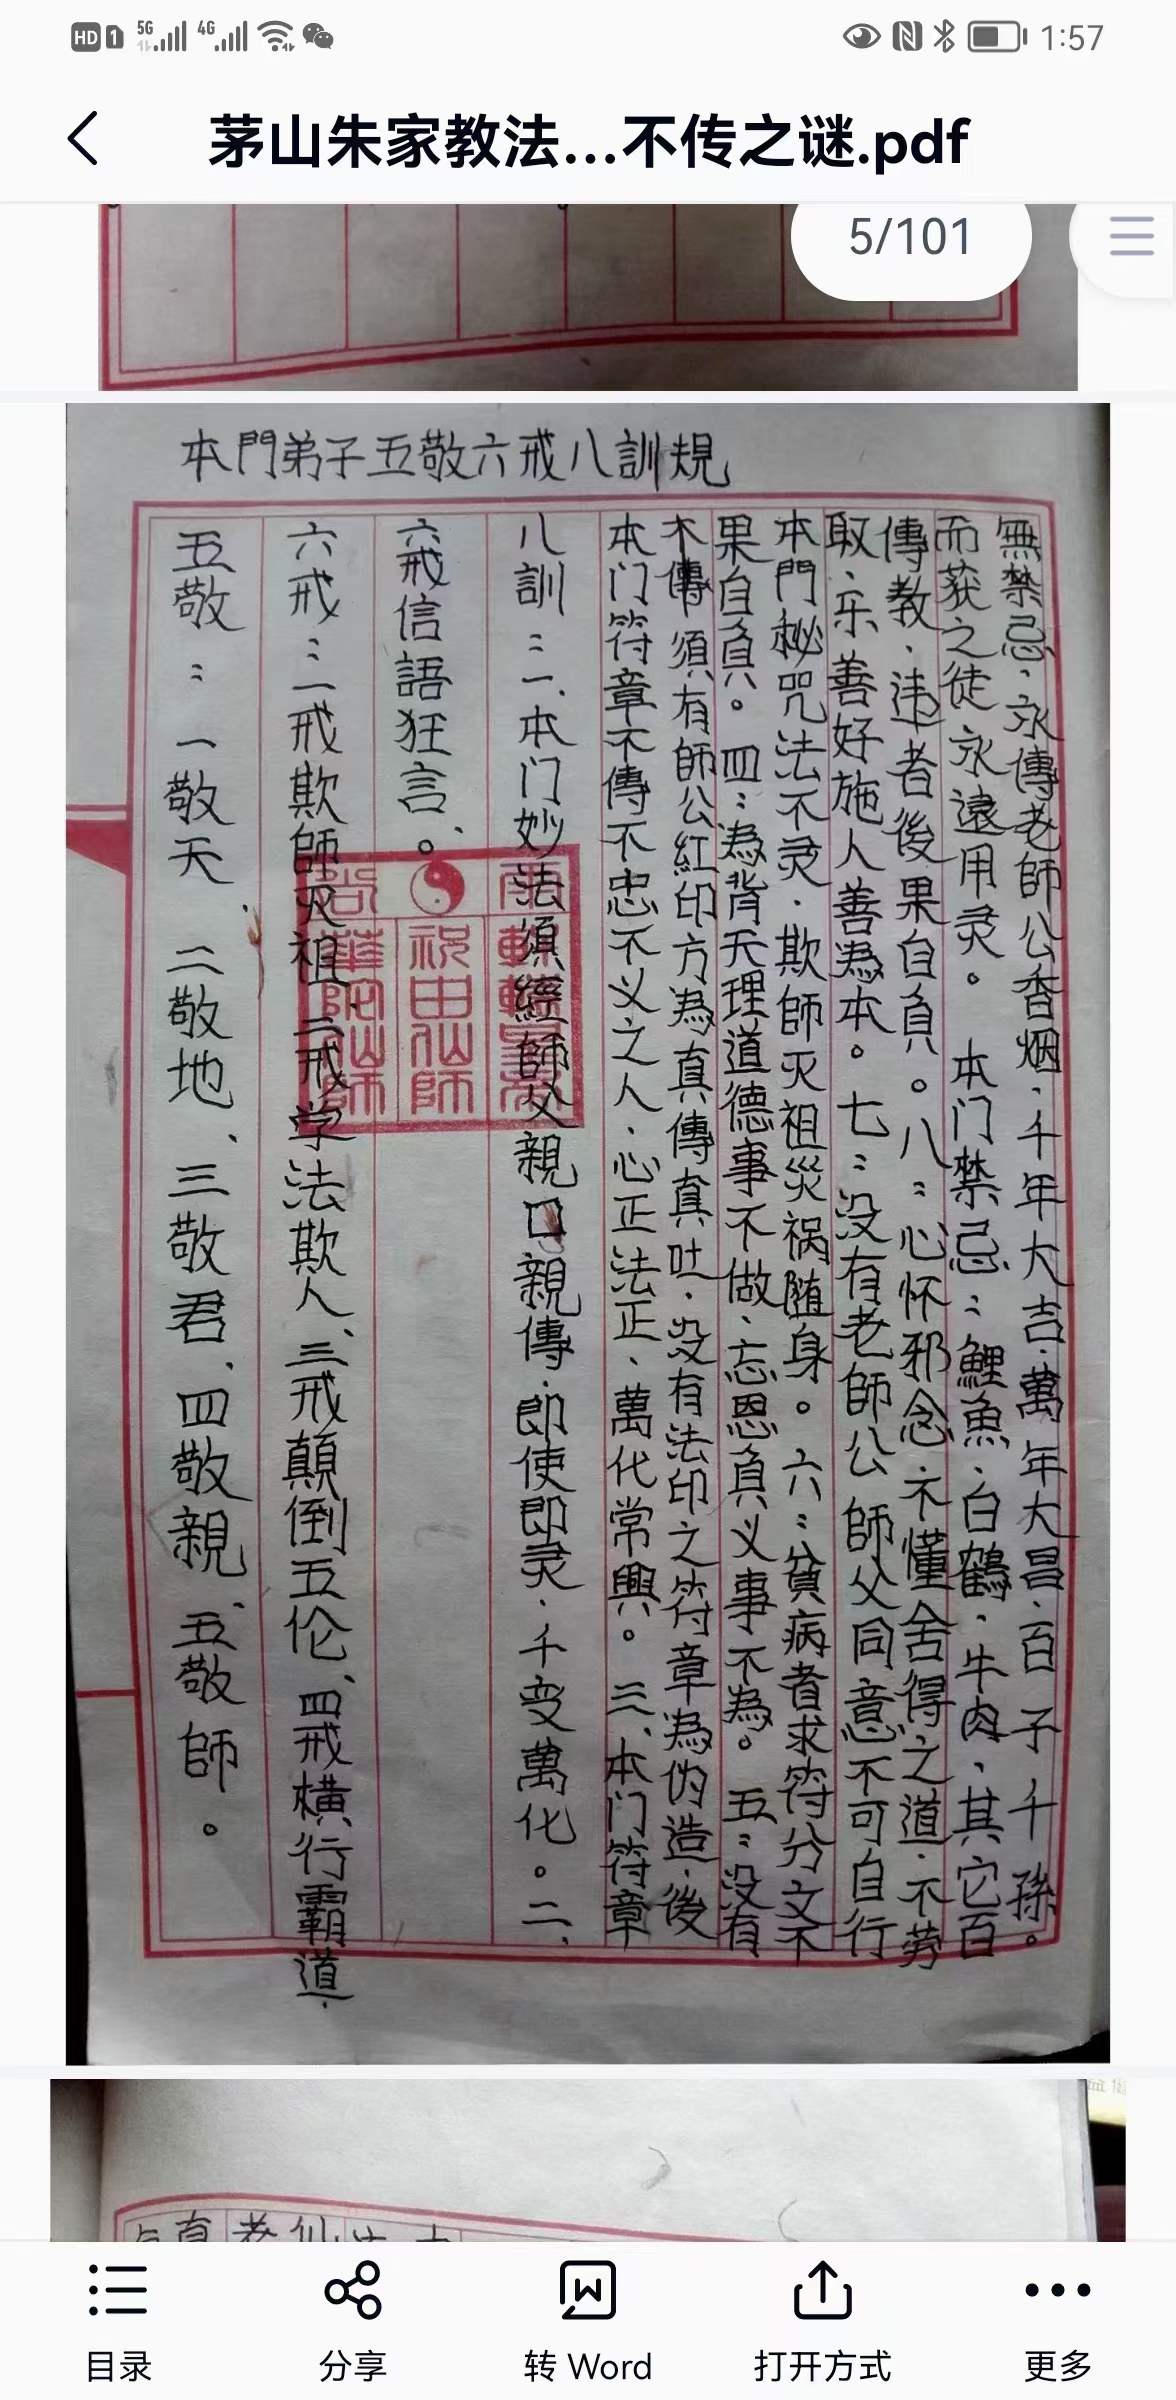 1:57
茅山朱家教法...不传之谜.pdf
5/101
本門弟子五敬六戒八訓規
五敬：一敬天 二敬地、三敬君、四敬親、五敬師。
六戒：一戒欺師灭祖、二戒学法欺人、三戒顛倒五伦、四戒横行霸道、
六戒信語狂言。
八訓：一、本门妙法須經師父親口親傳、即使即灵、千变萬化。二、
本门符章不傳不忠不义之人、心正法正、萬化常興。三、本门符章
不傳須有師公紅印方為真傳真吐、没有法印之符章為伪造、後
果自負。四：為背天理道德事不做、忘恩負义事不為。五：没有
本門秘咒法不灵、欺師灭祖災祸随身。六：貧病者求符分文不
取、乐善好施人善為本。七：没有老師公師父同意不可自行
傳教、违者後果自負。八：心怀邪念、不懂舍得之道、不劳
而获之徒永遠用灵。本门禁忌：鯉魚、白鶴、牛肉、其它百
無禁忌、永傳老師公香烟、千年大吉、萬年大昌、百子千孫。
祝由仙師
華陀仙師
目录
分享
转 Word
打开方式
更多